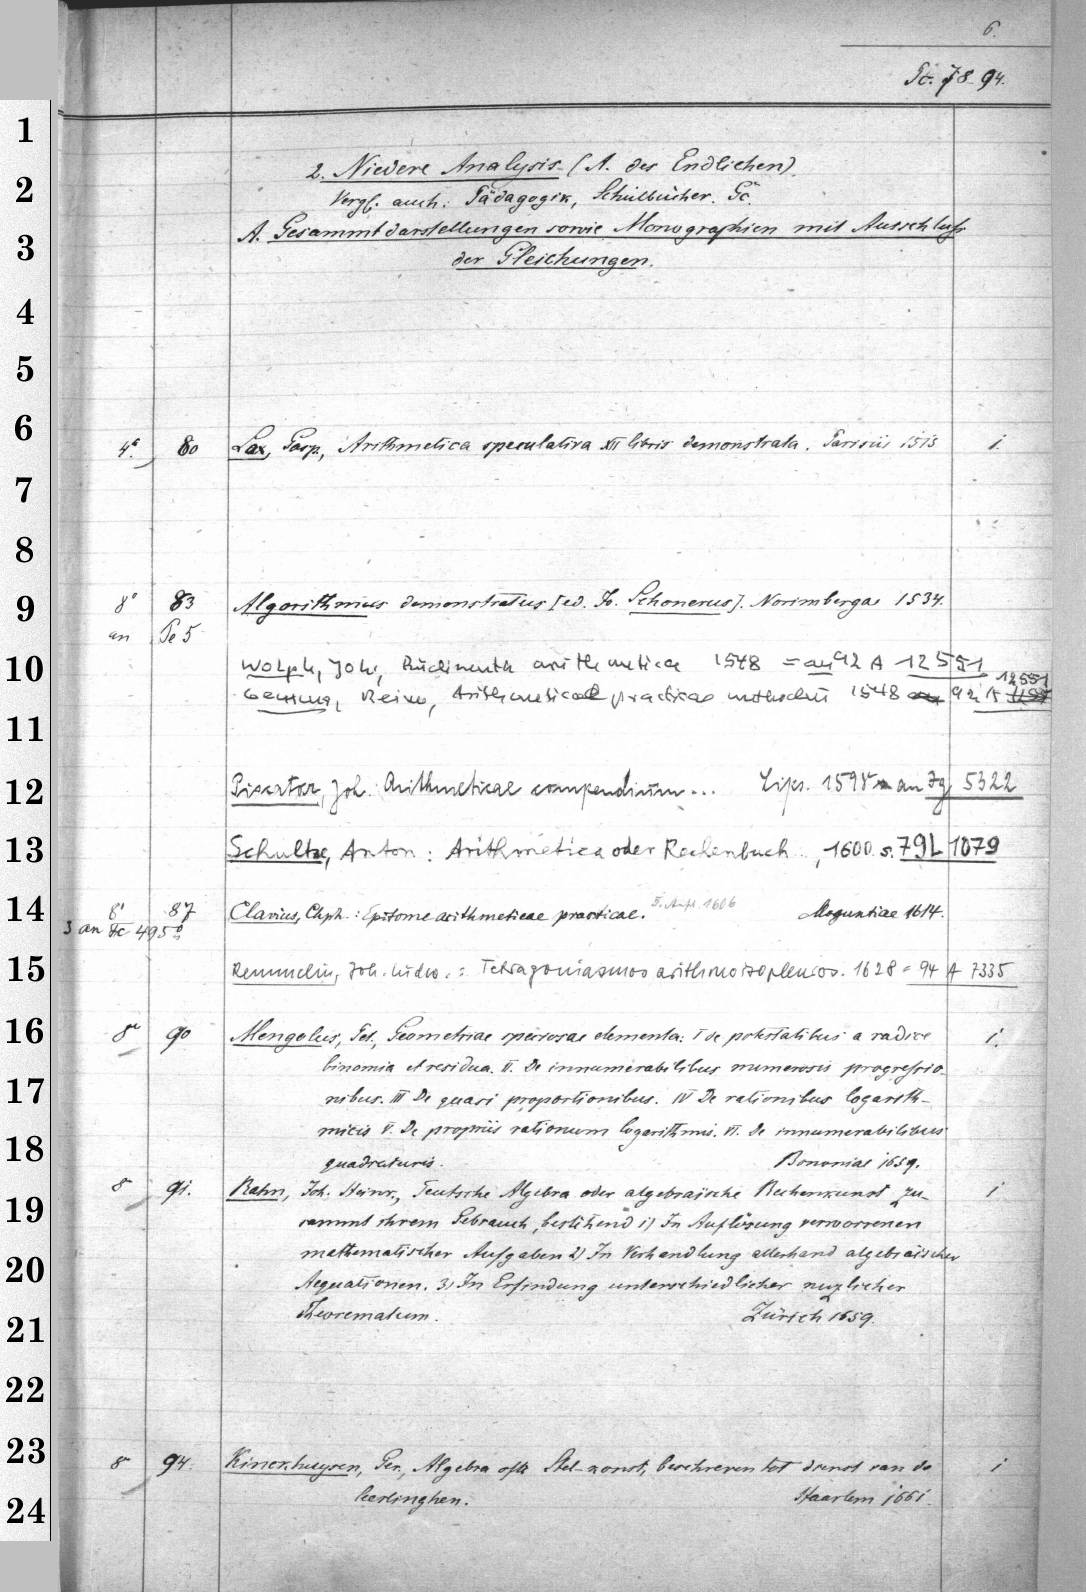 6.
78-94.
1
2. Niedere Analysis (A. des Endlichen).
2
Vergl. auch: Pädagogik, Schulbücher. Gc.
3
A. Gesammtdarstellungen sowie Monographien mit Ausschluss
der Gleichungen.
4
5
6
4° 80 Lax, Gasp., Arithmetica speculativa XII libris demonstrata. Parisiis 1515 1.
7
8
9
8° 83 Algorithmus demonstratus [ed. Jo. Schonerus]. Norimbergae 1534.
an Pe 5
10
Wolph, Joh., Rudimenta arithmetica 1548 = an 92 A 12551
Gemma, Arithmeticae practicae methodus 1548 92 A 12551
11
12
Piscator, Joh. Arithmeticae compendium... Lips. 1598 an Jg 5322
13
Schultze, Anton: Arithmetica oder Rechenbuch, 1600. s. 79 L 1079
14
8° 87 Clavius, Chph.: Epitome arithmeticae practicae. 5. Aufl. 1606 Moguntiae 1614.
3 an 495
15
Remmelin, Joh. Ludw.: Tetragoniasmos arithmoisopleuros. 1628 = 94 A 7335
16
8° 90 Mengolus, Pet., Geometriae speciosae elementa: I de potestatibus a radice 1.
binomia et residua. II. De innumerabilibus numerosis progressio-
17
nibus. III De quasi proportionibus. IV De rationibus logarith-
micis V. De propriis rationum logarithmis. VI. De innumerabilibus
18
quadraturis. Bononiae 1659.
8° 91. Rahn, Joh. Heinr., Teutsche Algebra oder algebraische Rechenkunst zu- 1
19
sammt ihrem Gebrauch, bestehend 1) In Auflösung verworrenen
mathematischer Aufgaben 2) In Verhandlung allerhand algebraischer
20
Aequationen. 3) In Erfindung unterschiedlicher nuzlicher
Theorematum. Zürich 1659.
21
22
23
8° 94. Kinckhuysen, Ger., Algebra ofte Stel-konst, beschreven tot dienst van de 1
leerlinghen. Haarlem 1661.
24